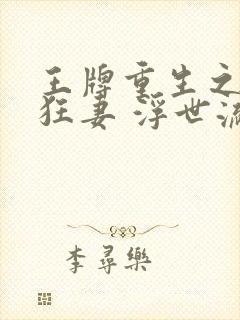 王牌重生之
狂妻 浮世流
李尋樂